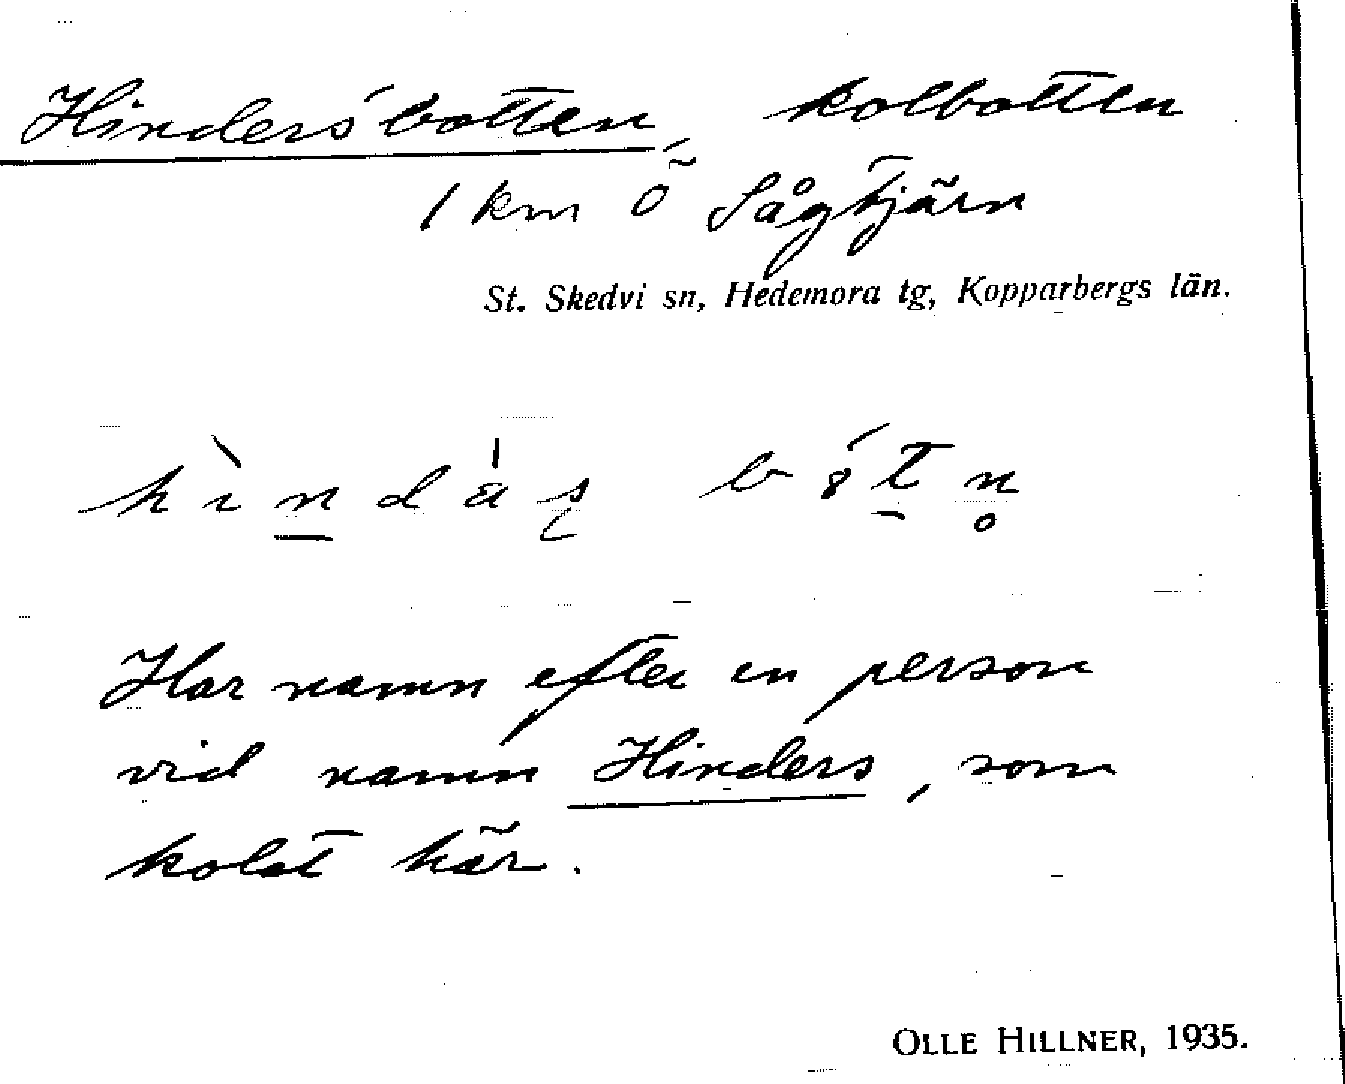 Hinders'botten, kolbotten
1 km Ö Sågtjärn
St. Skedvi sn, Hedemora tg, Kopparbergs län.
Har namn efter en person
vid namn Hinders, som
kolat här.
OLLE HILLNER, 1935.